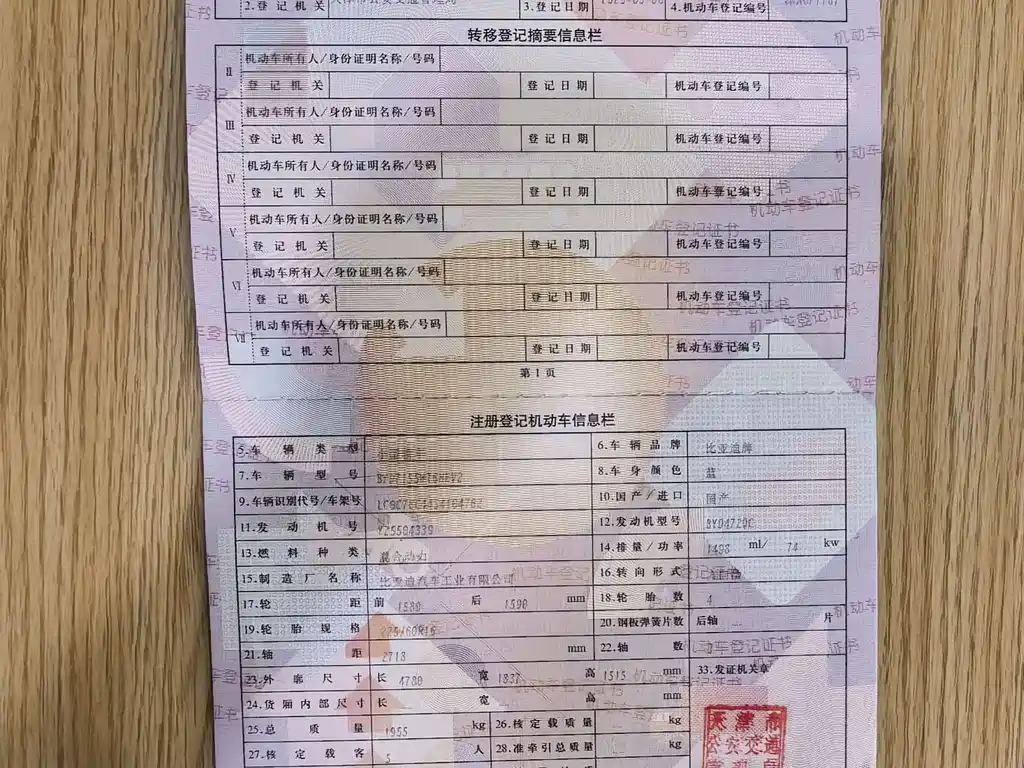 2.登记机关 3.登记日期 4.机动车登记编号
转移登记摘要信息栏
Ⅱ 机动车所有人/身份证明名称/号码
登记机关 登记日期 机动车登记编号
Ⅲ 机动车所有人/身份证明名称/号码
登记机关 登记日期 机动车登记编号
Ⅳ 机动车所有人/身份证明名称/号码
登记机关 登记日期 机动车登记编号
Ⅴ 机动车所有人/身份证明名称/号码
登记机关 登记日期 机动车登记编号
Ⅵ 机动车所有人/身份证明名称/号码
登记机关 登记日期 机动车登记编号
Ⅶ 机动车所有人/身份证明名称/号码
登记机关 登记日期 机动车登记编号
第1页
注册登记机动车信息栏
5.车辆类型 6.车辆品牌 比亚迪牌
7.车辆型号 8.车身颜色 蓝
9.车辆识别代号/车架号 10.国产/进口 国产
11.发动机号 12.发动机型号
13.燃料种类 混合动力 14.排量/功率 1498 ml/ 74 kw
15.制造厂名称 比亚迪汽车工业有限公司 16.转向形式
17.轮距 前 1580 后 1590 mm 18.轮胎数 4
19.轮胎规格 225/60R16 20.钢板弹簧片数 后轴 片
21.轴距 2718 mm 22.轴数
23.外廓尺寸 长 4780 宽 1837 高 1515 mm 33.发证机关章
24.货厢内部尺寸 长 宽 高 mm
25.总质量 1955 kg 26.核定载质量 kg
27.核定载客 5 人 28.准牵引总质量 kg
天津市
公安交通